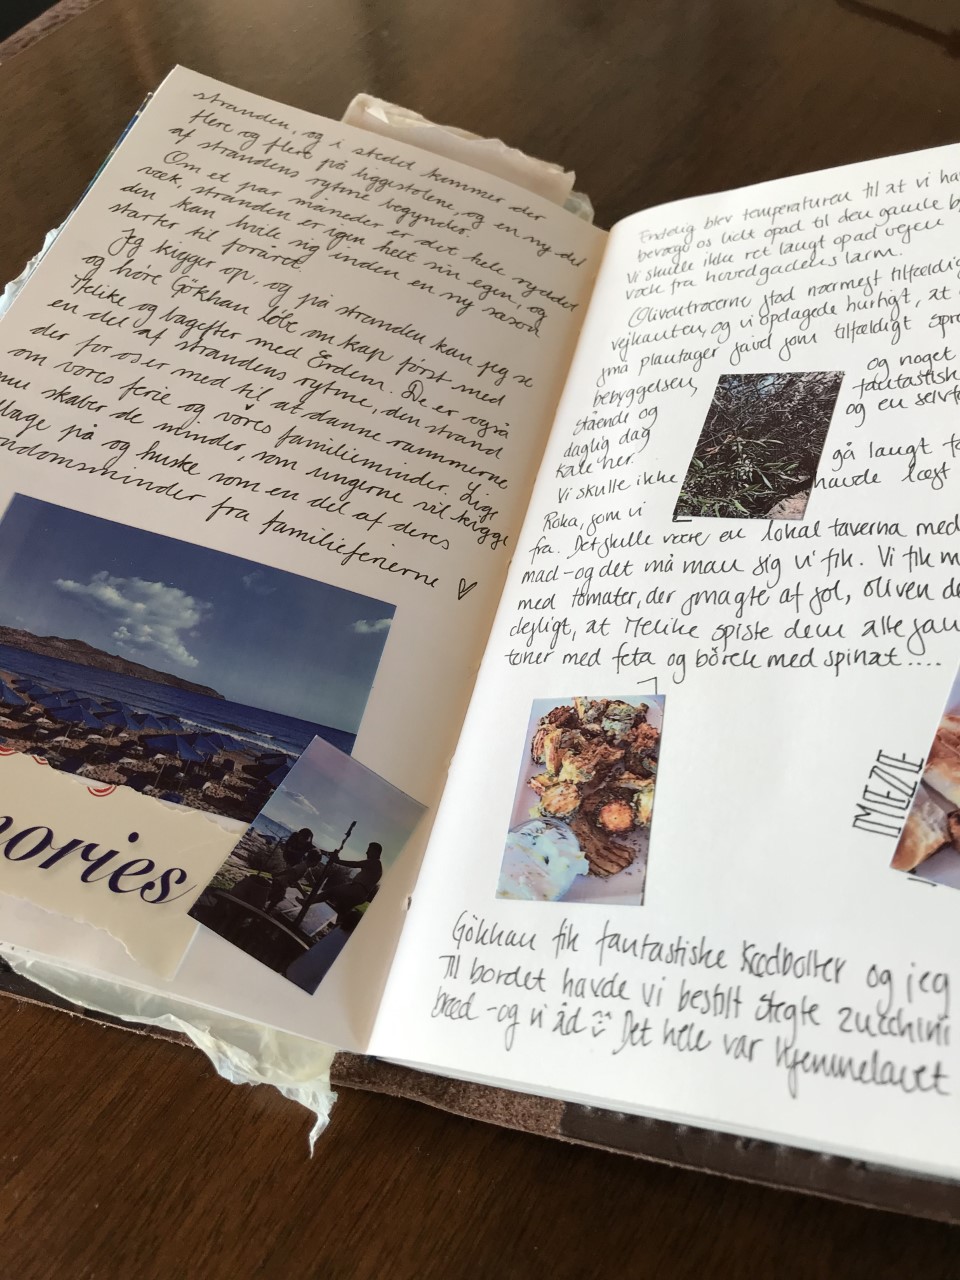 stranden, og i stedet kommer der
flere og flere på liggestolene, og en ny del
af strandens rytme begynder.
Om et par måneder er det hele ryddet
væk, stranden er igen helt sin egen, og
den kan hvile sig inden en ny sæson
starter til foråret.
Jeg kigger op, og på stranden kan jeg se
og høre Gökhan løbe om kap først med
Melike og bagefter med Erdem. De er også
en del af strandens rytme, den strand
der for os er med til at danne rammerne
om vores ferie og vores familieminder. Lige
nu skaber de minder, som ungerne vil kigge
tilbage på og huske som en del af deres
fra familieferierne ♡
mories
Endelig blev temperaturen til at vi
bevæge os lidt opad til den gamle
Vi skulle ikke ret langt opad vejen
væk fra hovedgadens larm.
Oliventræerne stod nærmest
vejkanten, og vi opdagede hurtigt, at
små plantager favd som tilfældigt
bebyggelsen, og noget
stående og
daglig dag og en
kale her. gå langt
Vi skulle ikke havde læst
Roka, som vi
fra. Det skulle være en lokal taverna med
mad - og det må man sig vi fik. Vi fik
med tomater, der smagte af sol, oliven
dejligt, at Melike spiste dem alle
toner med feta og börek med spinat....
MEZE
Gökhan fik fantastiske kødboller og jeg
Til bordet havde vi bestilt stegte zucchini
brød - og vi åd Det hele var hjemmelavet